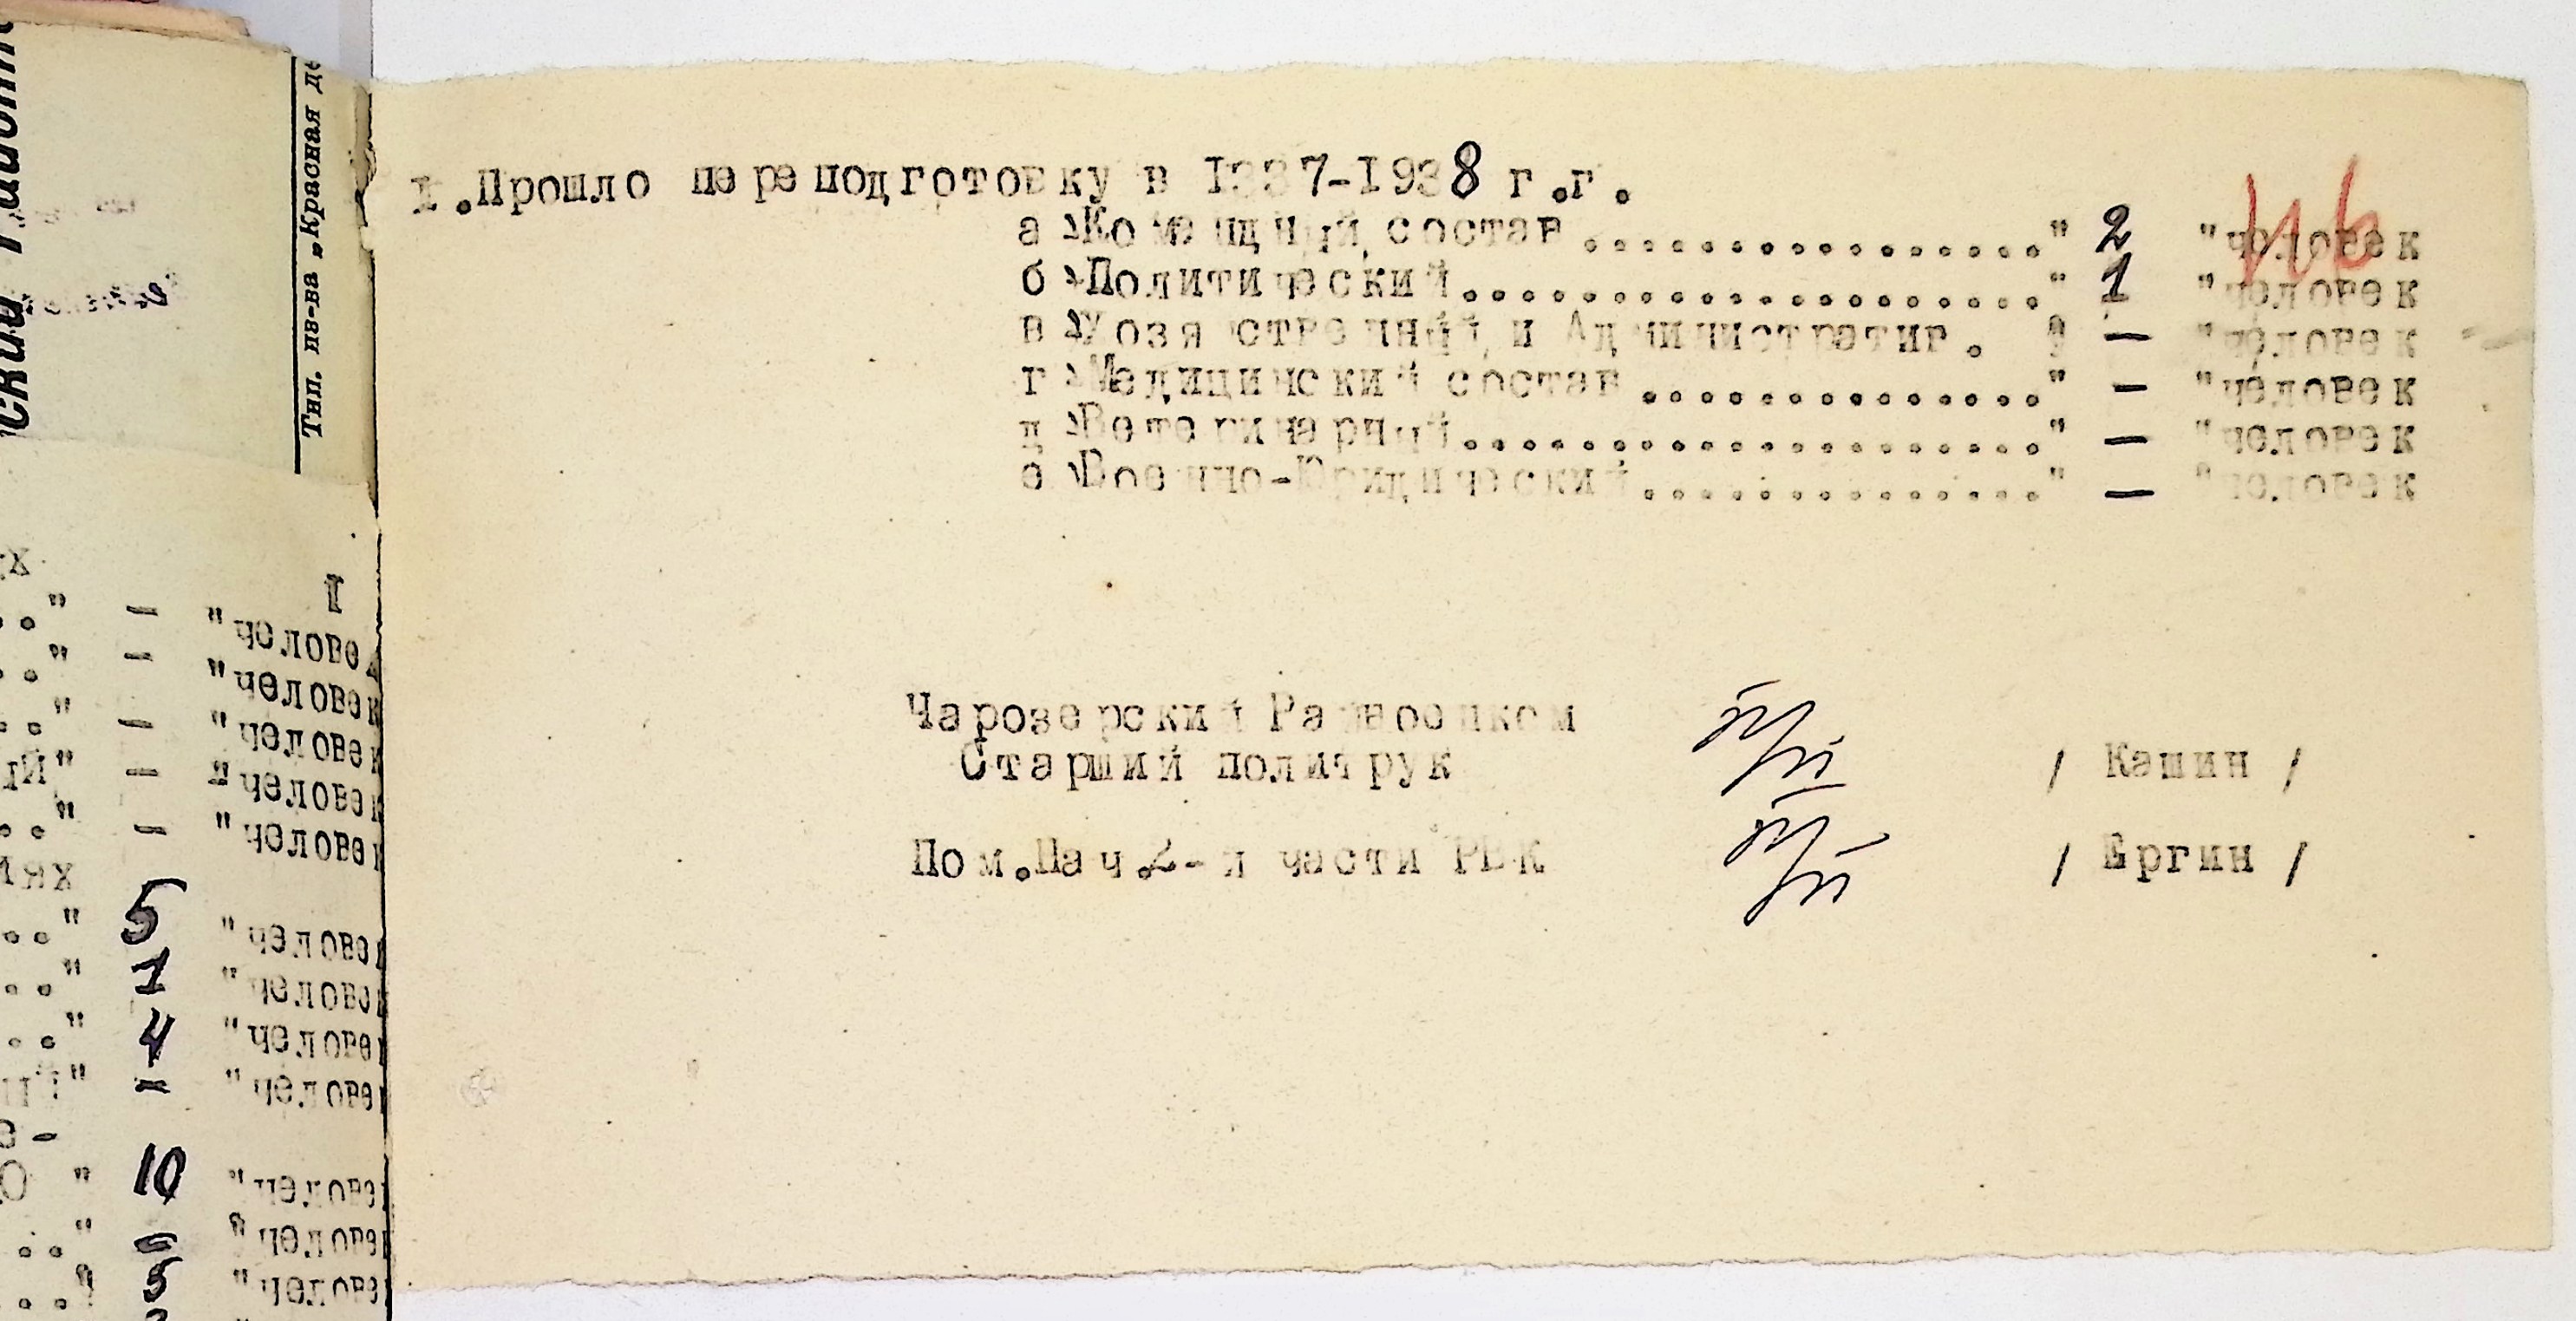 ский
Тип. из-ва „Красная де
х
." - "челове
." - "человек
." - "человек
ый" - "человек
." - "человек
иях
.." 5 "человек
.." 1 "человек
.." 4 "человек
ый" - "человек
е-
О " 10 "человек
.." - "человек
.." 5 "человек
I.Прошло переподготовку в 1937-1938 г.г.
а)Командный состав................" 2 "человек
б)Политический...................." 1 "человек
в)Хозяйственный и Административ. " - "человек
г)Медицинский состав.............." - "человек
д)Ветеринарный...................." - "человек
е)Военно-Юридический.............." - "человек
Чарозерский Райвоенком
Старший политрук / Кашин /
Пом.Нач.2-й части РВК / Ергин /